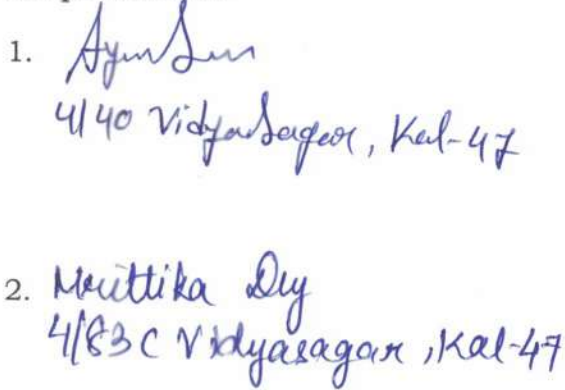 1. Ayan Sen
4/40 Vidyasagar, Kal-47
2. Mrittika Dey
4/83C Vidyasagar, Kal-47